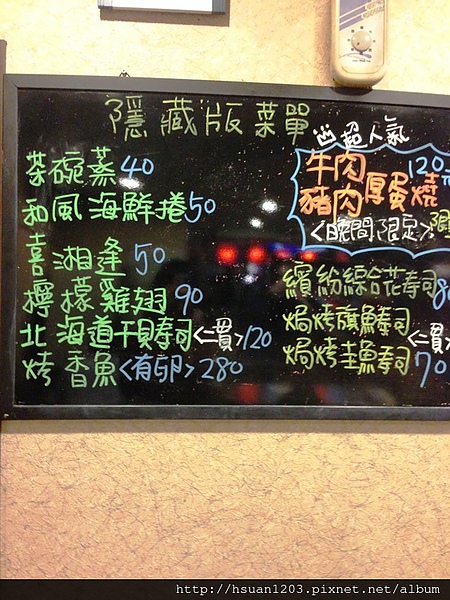 隱藏版菜單
茶碗蒸 40
和風海鮮捲 50
喜湘逢 50
檸檬雞翅 90
北海道干貝壽司<二貫>120
烤香魚<有卵>280
超人氣
牛肉
豬肉 厚蛋燒 120元
<晚間限定>
繽紛綜合花壽司 80
焗烤旗魚壽司
焗烤圭魚壽司 <二貫> 70
http://hsuan1203.pixnet.net/album